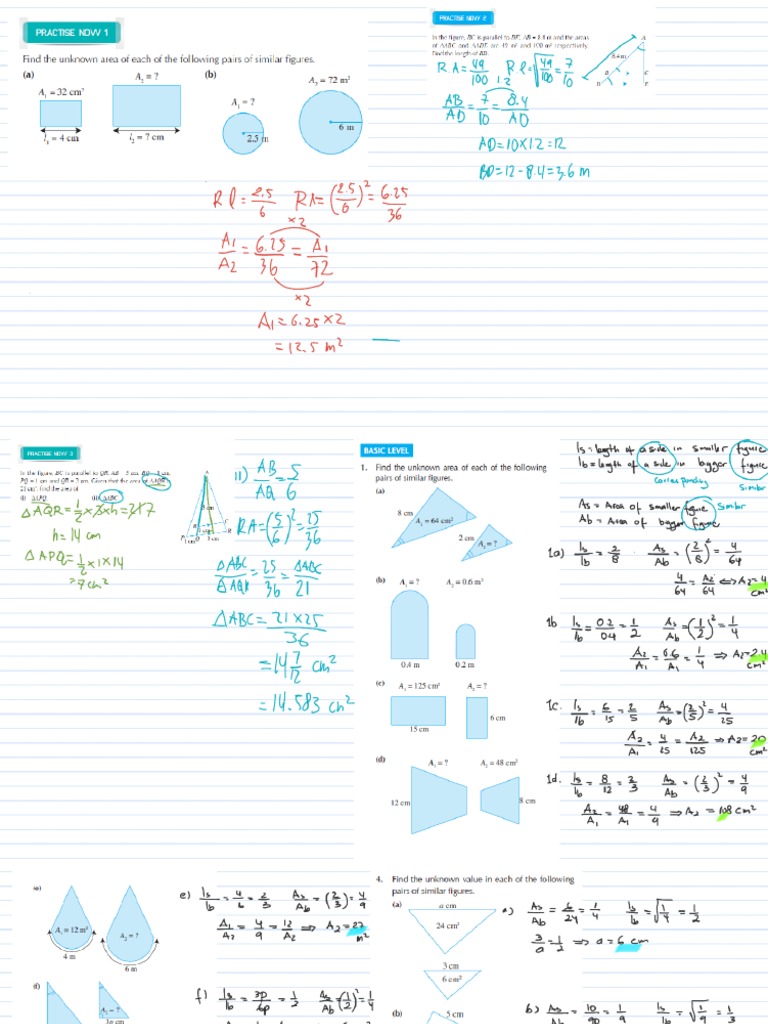 PRACTISE NOW 1
Find the unknown area of each of the following pairs of similar figures.
(a)
A₁ = 32 cm²
A₂ = ?
l₁ = 4 cm
l₂ = ? cm
(b)
A₁ = ?
A₂ = 72 m²
2.5 m
6 m
Rl = 2.5/6 RA = (2.5/6)² = 6.25/36
×2
A₁/A₂ = 6.25/36 = A₁/72
×2
A₁ = 6.25 × 2
= 12.5 m²
PRACTISE NOW 2
In the figure, BC is parallel to DE, AB = 8.4 m and the areas
of △ABC and △ADE are 49 m² and 100 m² respectively.
Find the length of BD.
R.A = 49/100 Rl = √49/100 = 7/10
1.2
AB/AD = 7/10 = 8.4/AD
AD = 10×12 = 12
BD = 12 - 8.4 = 3.6 m
8.4 m
A
B
C
D
E
PRACTISE NOW 3
In the figure, BC is parallel to QR, AB = 5 cm, BQ = 1 cm,
PQ = 1 cm and QR = 3 cm. Given that the area of △AQR is
21 cm², find the area of
(i) △APQ, (ii) △ABC.
△AQR = 1/2 × 3 × h = 21
h = 14 cm
△APQ = 1/2 × 1 × 14
= 7 cm²
ii) AB/AQ = 5/6
RA = (5/6)² = 25/36
△ABC/△AQR = 25/36 = △ABC/21
△ABC = 21×25/36
= 14 7/12 cm²
= 14.583 cm²
BASIC LEVEL
1. Find the unknown area of each of the following
pairs of similar figures.
(a)
8 cm
A₁ = 64 cm²
2 cm
A₂ = ?
(b)
A₁ = ?
A₂ = 0.6 m²
0.4 m
0.2 m
(c)
A₁ = 125 cm²
A₂ = ?
15 cm
6 cm
(d)
A₁ = ?
A₂ = 48 cm²
12 cm
8 cm
ls = length of a side in smaller figure
lb = length of a side in bigger figure
corresponding
similar
As = Area of smaller figure similar
Ab = Area of bigger figure
1a) ls/lb = 2/8 As/Ab = (2/8)² = 4/64
4/64 = A₂/64 ⇔ A₂ = 4 cm²
1b ls/lb = 0.2/0.4 = 1/2 As/Ab = (1/2)² = 1/4
A₂/A₁ = 0.6/A₁ = 1/4 ⇒ A₂ = 2.4 cm²
1c. ls/lb = 6/15 = 2/5 As/Ab = (2/5)² = 4/25
A₂/A₁ = 4/25 = A₂/125 ⇒ A₂ = 20 cm²
1d. ls/lb = 8/12 = 2/3 As/Ab = (2/3)² = 4/9
A₂/A₁ = 48/A₁ = 4/9 ⇒ A₂ = 108 cm²
(e)
A₁ = 12 m²
A₂ = ?
4 m
6 m
e) ls/lb = 4/6 = 2/3 As/Ab = (2/3)² = 4/9
A₁/A₂ = 4/9 = 12/A₂ ⇒ A₂ = 27 m²
(f)
A₂ = ?
f) ls/lb = 3p/6p = 1/2 As/Ab = (1/2)² = 1/4
4. Find the unknown value in each of the following
pairs of similar figures.
(a)
a cm
24 cm²
3 cm
6 cm²
a) As/Ab = 6/24 = 1/4 ls/lb = √1/4 = 1/2
3/a = 1/2 ⇒ a = 6 cm
(b)
5 cm
b) As/Ab = 10/90 = 1/9 ls/lb = √1/9 = 1/3